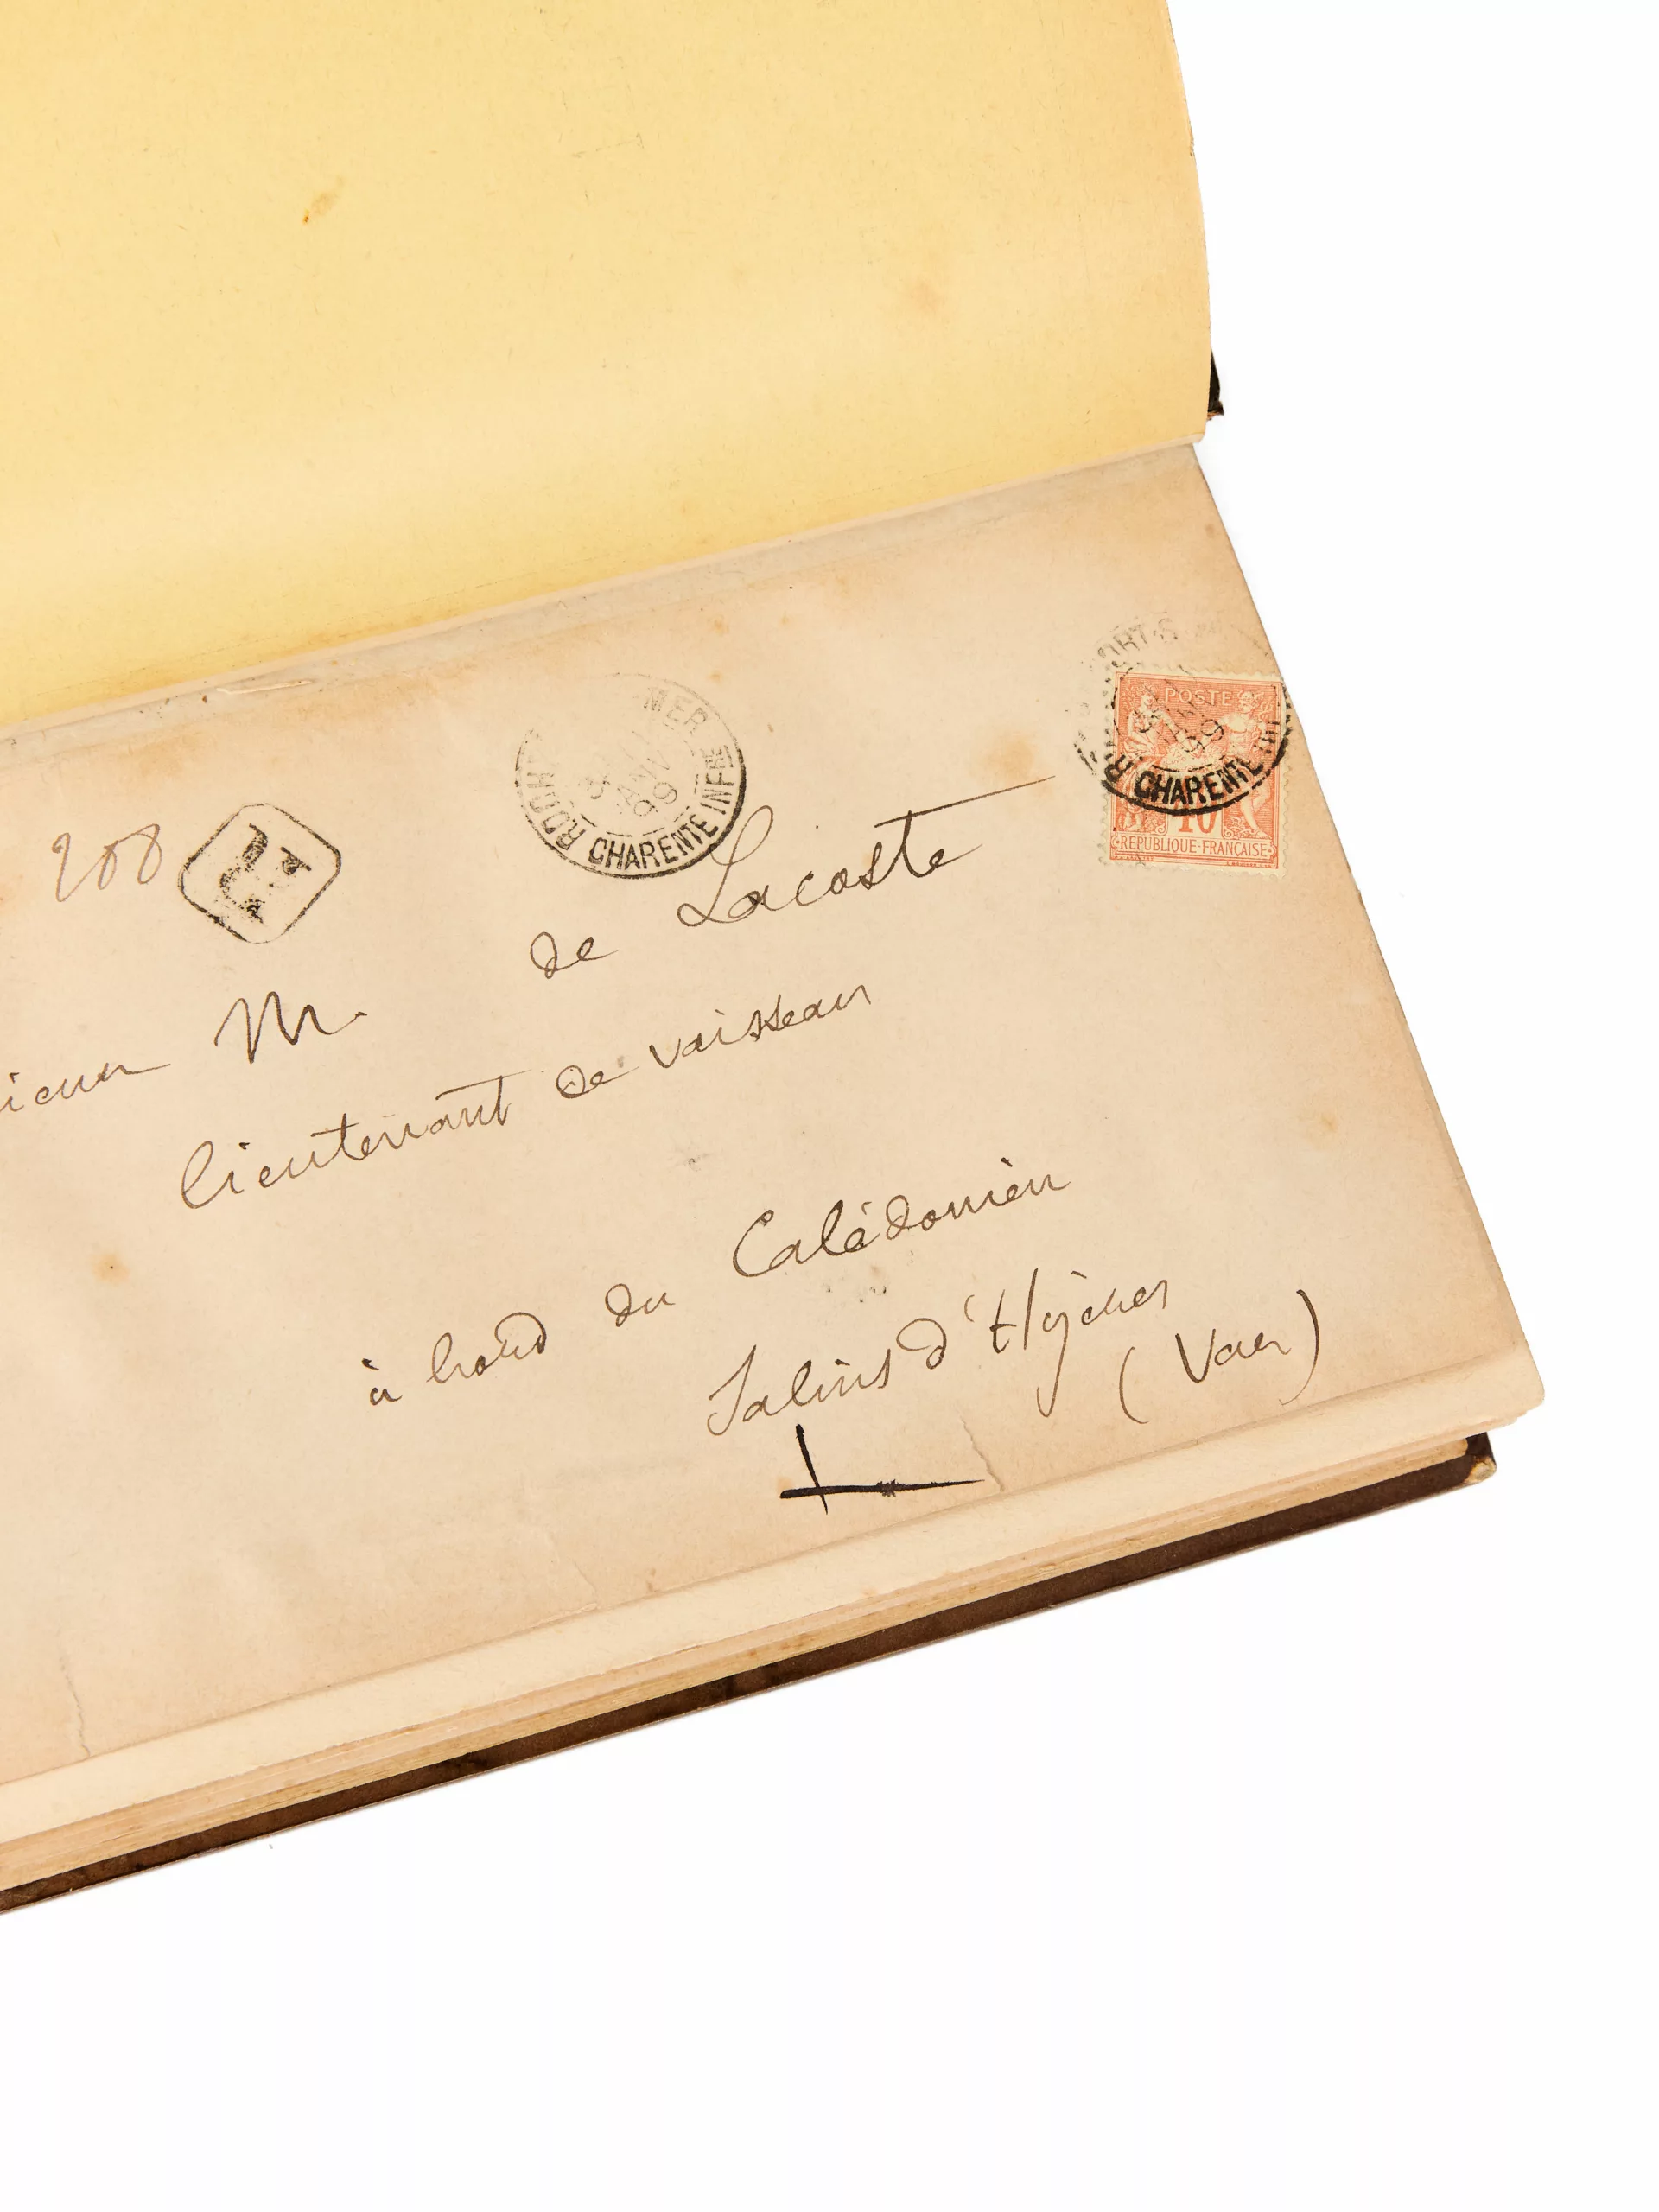 208
R
MER
ROCH
JANV
99
CHARENTE INFRE
ORT-S
POSTE
99
CHARENTE INF
40
REPUBLIQUE·FRANÇAISE
ieur M. de Lacoste
lieutenant de vaisseau
à bord du Calédonien
Salins d'Hyères
(Var)